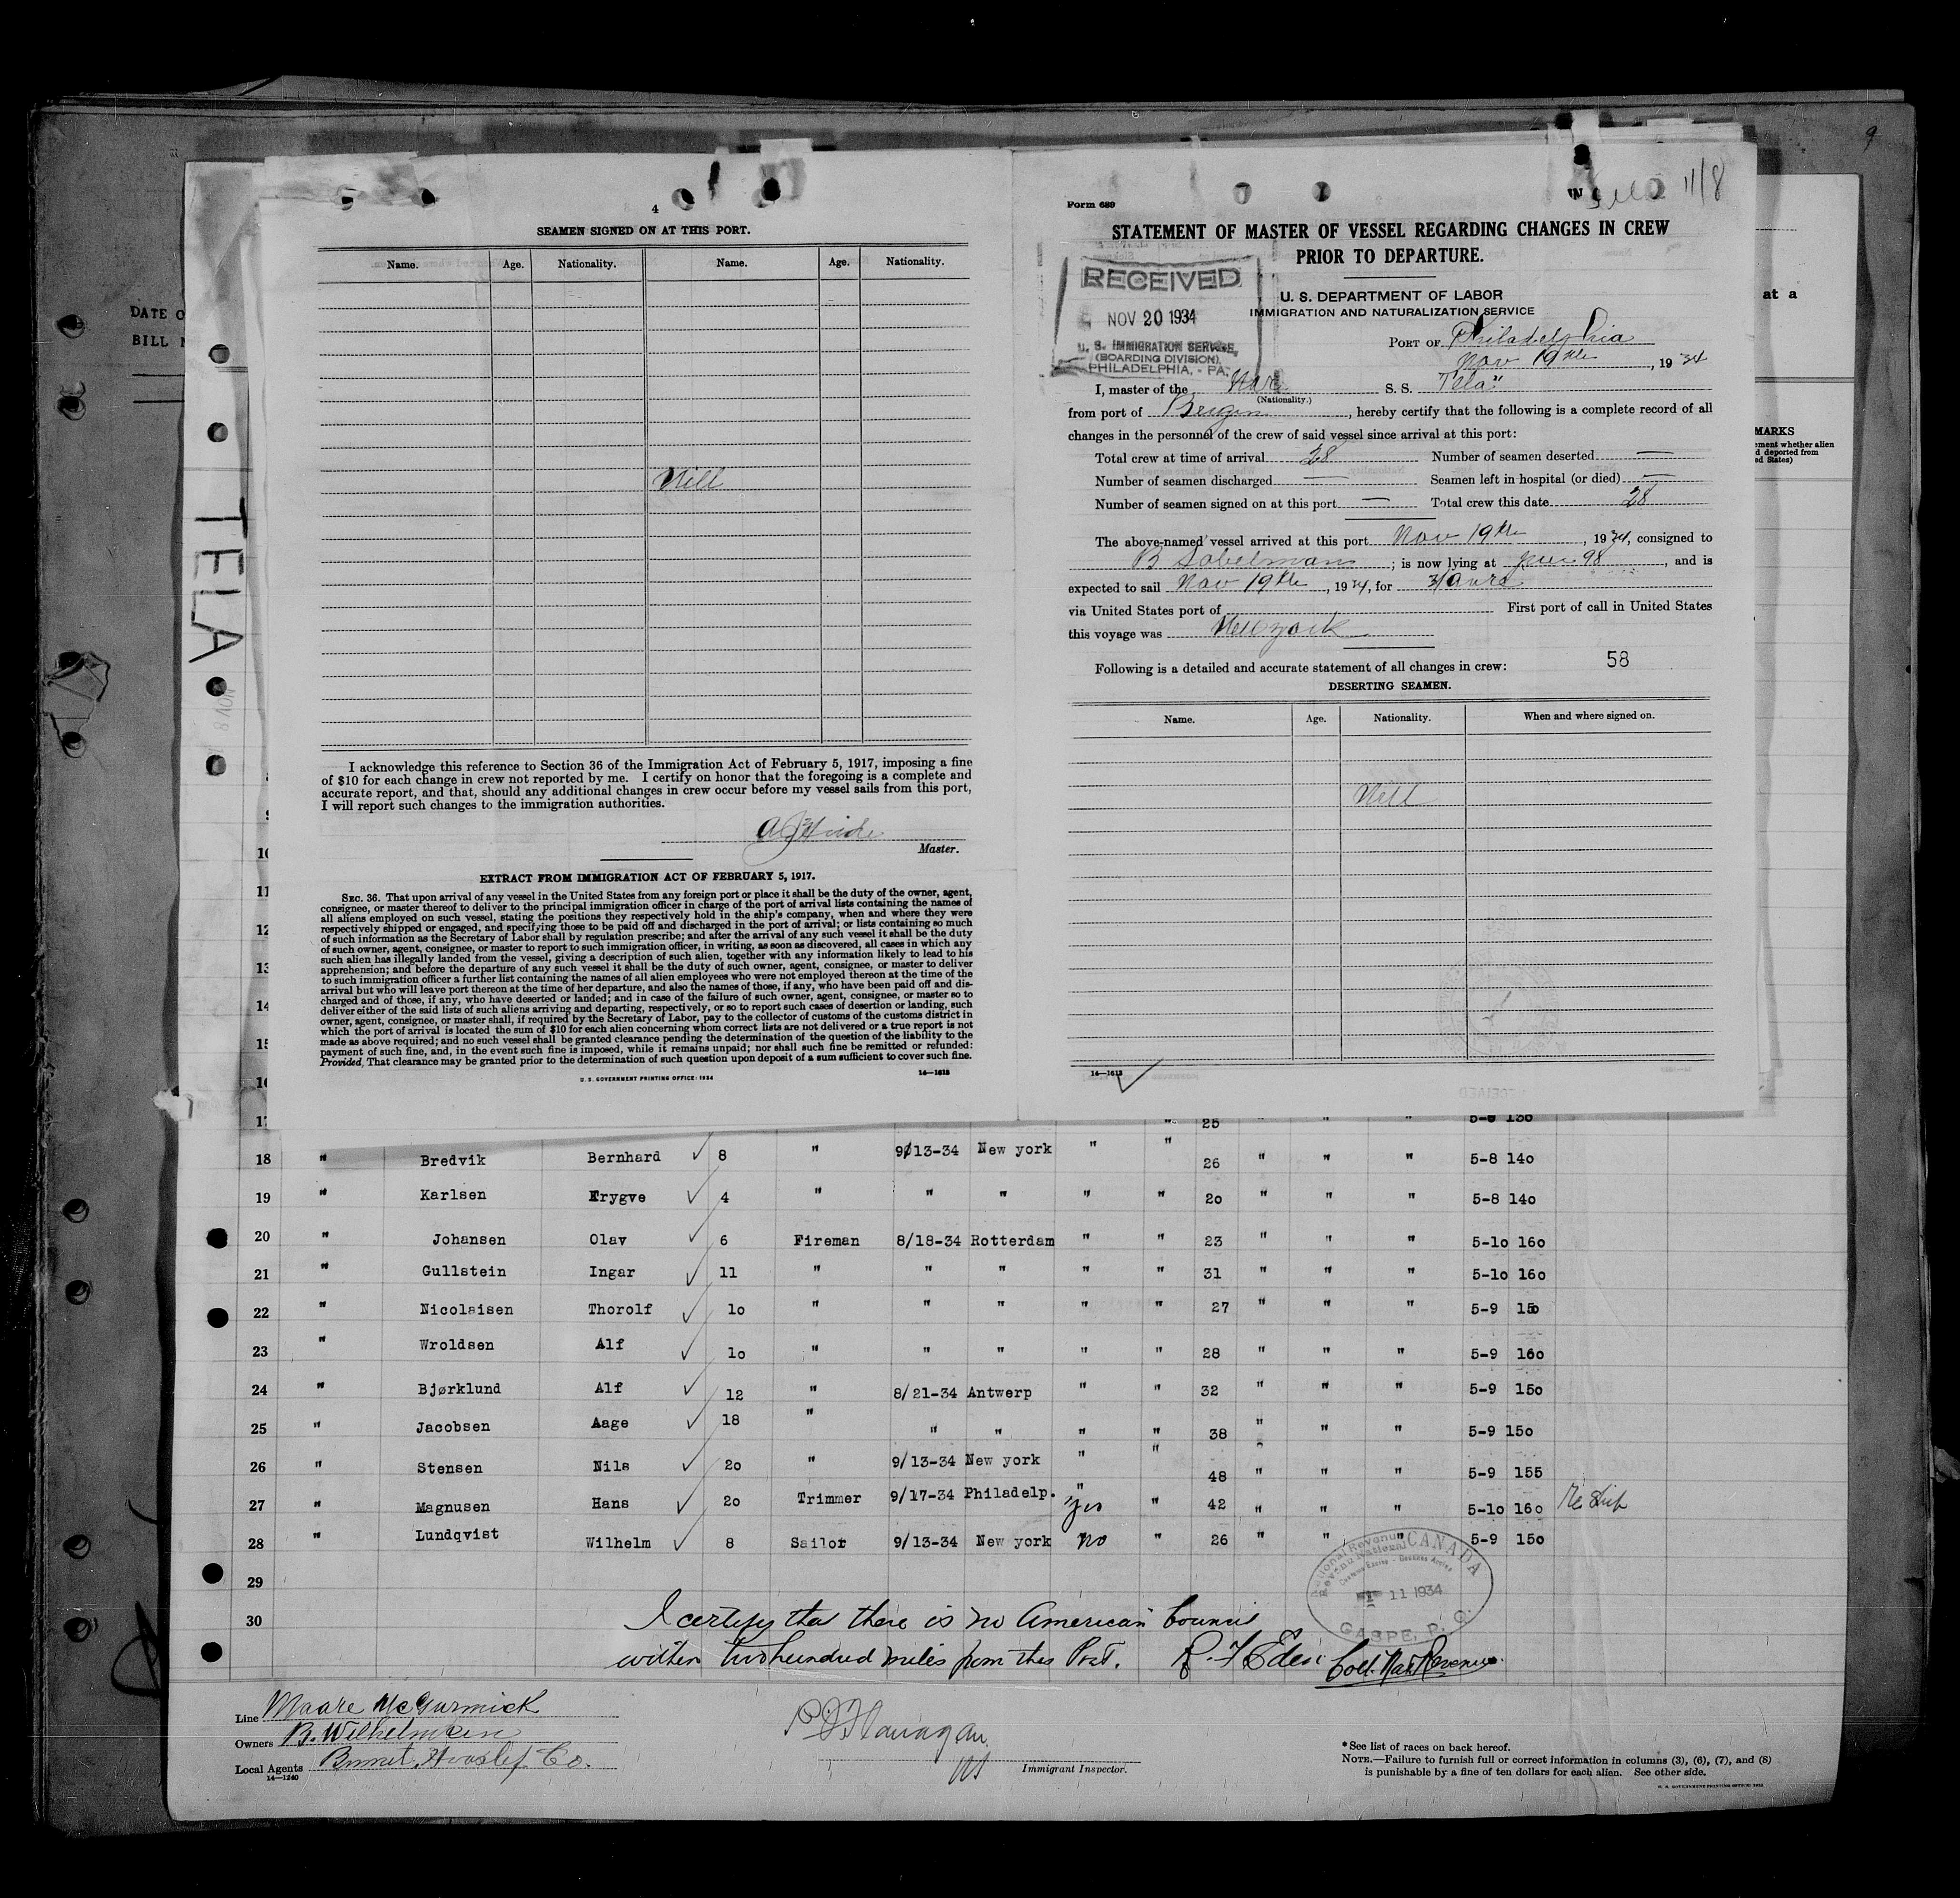 9
DATE O
BILL N
TELA
4
SEAMEN SIGNED ON AT THIS PORT.
Name. Age. Nationality. Name. Age. Nationality.
Nill
I acknowledge this reference to Section 36 of the Immigration Act of February 5, 1917, imposing a fine
of $10 for each change in crew not reported by me. I certify on honor that the foregoing is a complete and
accurate report, and that, should any additional changes in crew occur before my vessel sails from this port,
I will report such changes to the immigration authorities.
Master.
EXTRACT FROM IMMIGRATION ACT OF FEBRUARY 5, 1917.
SEC. 36. That upon arrival of any vessel in the United States from any foreign port or place it shall be the duty of the owner, agent,
consignee, or master thereof to deliver to the principal immigration officer in charge of the port of arrival lists containing the names of
all aliens employed on such vessel, stating the positions they respectively hold in the ship's company, when and where they were
respectively shipped or engaged, and specifying those to be paid off and discharged in the port of arrival; or lists containing so much
of such information as the Secretary of Labor shall by regulation prescribe; and after the arrival of any such vessel it shall be the duty
of such owner, agent, consignee, or master to report to such immigration officer, in writing, as soon as discovered, all cases in which any
such alien has illegally landed from the vessel, giving a description of such alien, together with any information likely to lead to his
apprehension; and before the departure of any such vessel it shall be the duty of such owner, agent, consignee, or master to deliver
to such immigration officer a further list containing the names of all alien employees who were not employed thereon at the time of the
arrival but who will leave port thereon at the time of her departure, and also the names of those, if any, who have been paid off and dis-
charged and of those, if any, who have deserted or landed; and in case of the failure of such owner, agent, consignee, or master so to
deliver either of the said lists of such aliens arriving and departing, respectively, or so to report such cases of desertion or landing, such
owner, agent, consignee, or master shall, if required by the Secretary of Labor, pay to the collector of customs of the customs district in
which the port of arrival is located the sum of $10 for each alien concerning whom correct lists are not delivered or a true report is not
made as above required; and no such vessel shall be granted clearance pending the determination of the question of the liability to the
payment of such fine, and, in the event such fine is imposed, while it remains unpaid; nor shall such fine be remitted or refunded:
Provided, That clearance may be granted prior to the determination of such question upon deposit of a sum sufficient to cover such fine.
U. S. GOVERNMENT PRINTING OFFICE: 1934 14—1613
11/8
Form 689
STATEMENT OF MASTER OF VESSEL REGARDING CHANGES IN CREW
PRIOR TO DEPARTURE.
RECEIVED
NOV 20 1934
U. S. IMMIGRATION SERVICE,
(BOARDING DIVISION)
PHILADELPHIA, - PA.
U. S. DEPARTMENT OF LABOR
IMMIGRATION AND NATURALIZATION SERVICE
PORT OF Philadelphia
Nov 19th, 1934
I, master of the Nor. S. S. Tela"
(Nationality.)
from port of Bergen, hereby certify that the following is a complete record of all
changes in the personnel of the crew of said vessel since arrival at this port:
Total crew at time of arrival 28 Number of seamen deserted —
Number of seamen discharged — Seamen left in hospital (or died) —
Number of seamen signed on at this port — Total crew this date 28
The above-named vessel arrived at this port Nov 19th, 1934, consigned to
B Sobelman; is now lying at pier 98, and is
expected to sail Nov 19th, 1934, for
via United States port of First port of call in United States
this voyage was New york
Following is a detailed and accurate statement of all changes in crew: 58
DESERTING SEAMEN.
Name. Age. Nationality. When and where signed on.
Nill
14—1613
at a
MARKS
ement whether alien
d deported from
ed States)
10
11
12
13
14
15
16
17 " 25 " " " 5-8 130
18 " Bredvik Bernhard ✓ 8 " 9/13-34 New york " " 26 " " " 5-8 140
19 " Karlsen Trygve ✓ 4 " " " " " 20 " " " 5-8 140
20 " Johansen Olav ✓ 6 Fireman 8/18-34 Rotterdam " " 23 " " " 5-10 160
21 " Gullstein Ingar ✓ 11 " " " " " 31 " " " 5-10 160
22 " Nicolaisen Thorolf ✓ 10 " " " " " 27 " " " 5-9 150
23 " Wroldsen Alf ✓ 10 " " " " " 28 " " " 5-9 160
24 " Bjørklund Alf ✓ 12 " 8/21-34 Antwerp " " 32 " " " 5-9 150
25 " Jacobsen Aage ✓ 18 " " " " " 38 " " " 5-9 150
26 " Stensen Nils ✓ 20 " 9/13-34 New york " " 48 " " " 5-9 155
27 " Magnusen Hans ✓ 20 Trimmer 9/17-34 Philadelp. " yes " 42 " " " 5-10 160
28 " Lundqvist Wilhelm ✓ 8 Sailor 9/13-34 New york no " 26 " " " 5-9 150
29
30
National Revenue CANADA
Revenu National
Customs Excise - Douanes Accise
11 1934
GASPE, P. Q.
I certify that there is no American Council
within two hundred miles from this Port. R. F. Eden Coll. Nat. Revenue.
Line Moore McCormick
Owners B. Wilhelmsen
Local Agents Co.
14—1240
Immigrant Inspector.
*See list of races on back hereof.
NOTE.—Failure to furnish full or correct information in columns (3), (6), (7), and (8)
is punishable by a fine of ten dollars for each alien. See other side.